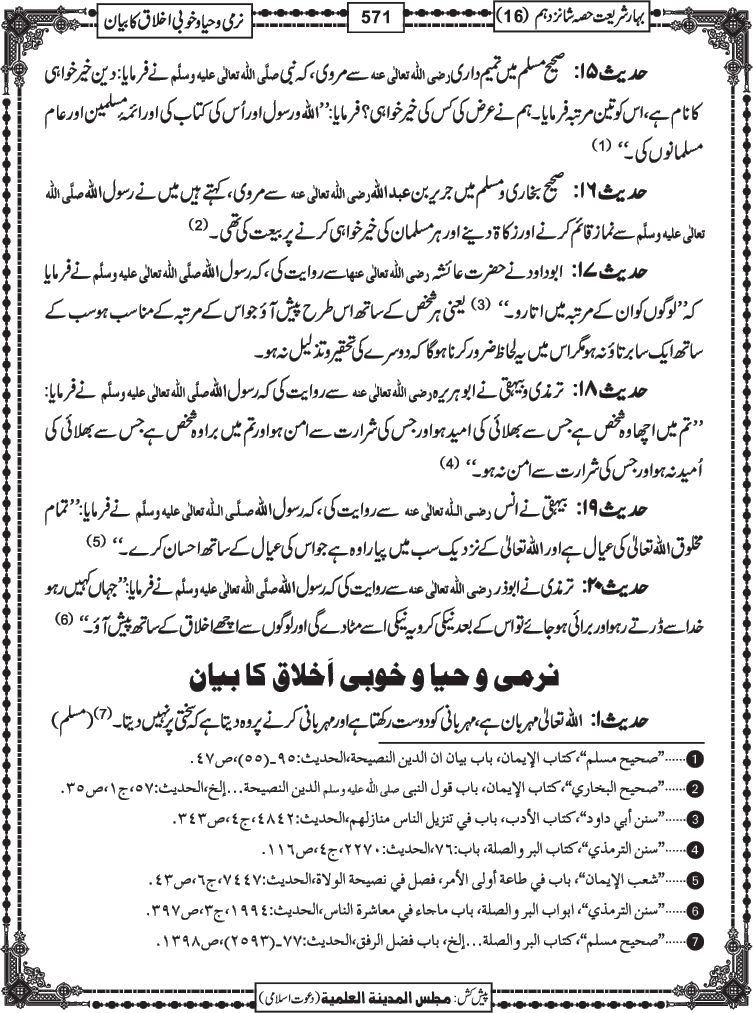 بہارِ شریعت حصہ شانزدہم (16)
571
نرمی و حیا و خوبی اخلاق کا بیان
حدیث ۱۵: صحیح مسلم میں تمیم داری رضی اللہ تعالٰی عنہ سے مروی، کہ نبی صلَّی اللہ تعالٰی علیہ وسلَّم نے فرمایا: دین خیر خواہی
کا نام ہے، اس کو تین مرتبہ فرمایا۔ ہم نے عرض کی کس کی خیر خواہی؟ فرمایا: ’’اﷲ و رسول اور اُس کی کتاب کی اور ائمۂ مسلمین اور عام
مسلمانوں کی۔‘‘ (1)
حدیث ۱۶: صحیح بخاری و مسلم میں جریر بن عبد اللہ رضی اللہ تعالٰی عنہ سے مروی، کہتے ہیں میں نے رسول اللہ صلَّی اللہ
تعالٰی علیہ وسلَّم سے نماز قائم کرنے اور زکاۃ دینے اور ہر مسلمان کی خیر خواہی کرنے پر بیعت کی تھی۔ (2)
حدیث ۱۷: ابوداود نے حضرت عائشہ رضی اللہ تعالٰی عنہا سے روایت کی، کہ رسول اللہ صلَّی اللہ تعالٰی علیہ وسلَّم نے فرمایا
کہ ’’لوگوں کو ان کے مرتبہ میں اتارو۔‘‘ (3) یعنی ہر شخص کے ساتھ اس طرح پیش آؤ جو اس کے مرتبہ کے مناسب ہو سب کے
ساتھ ایک سا برتاؤ نہ ہو مگر اس میں یہ لحاظ ضرور کرنا ہوگا کہ دوسرے کی تحقیر و تذلیل نہ ہو۔
حدیث ۱۸: ترمذی و بیہقی نے ابوہریرہ رضی اللہ تعالٰی عنہ سے روایت کی کہ رسول اللہ صلَّی اللہ تعالٰی علیہ وسلَّم نے فرمایا:
’’تم میں اچھا وہ شخص ہے جس سے بھلائی کی امید ہو اور جس کی شرارت سے امن ہو اور تم میں برا وہ شخص ہے جس سے بھلائی کی
اُمید نہ ہو اور جس کی شرارت سے امن نہ ہو۔‘‘ (4)
حدیث ۱۹: بیہقی نے انس رضی اللہ تعالٰی عنہ سے روایت کی، کہ رسول اللہ صلَّی اللہ تعالٰی علیہ وسلَّم نے فرمایا: ’’تمام
مخلوق اللہ تعالیٰ کی عیال ہے اور اللہ تعالیٰ کے نزدیک سب میں پیارا وہ ہے جو اس کی عیال کے ساتھ احسان کرے۔‘‘ (5)
حدیث ۲۰: ترمذی نے ابوذر رضی اللہ تعالٰی عنہ سے روایت کی کہ رسول اللہ صلَّی اللہ تعالٰی علیہ وسلَّم نے فرمایا: ’’جہاں کہیں رہو
خدا سے ڈرتے رہو اور برائی ہو جائے تو اس کے بعد نیکی کرو یہ نیکی اسے مٹادے گی اور لوگوں سے اچھے اخلاق کے ساتھ پیش آؤ۔‘‘ (6)
نرمی و حیا و خوبی اَخلاق کا بیان
حدیث ۱: اللہ تعالیٰ مہربان ہے، مہربانی کو دوست رکھتا ہے اور مہربانی کرنے پر وہ دیتا ہے کہ سختی پر نہیں دیتا۔ (7) (مسلم)
1 ......”صحيح مسلم“،كتاب الإيمان، باب بيان ان الدين النصيحة،الحديث:٩٥ـ(٥٥)،ص٤٧.
2 ......”صحيح البخاري“،كتاب الإيمان، باب قول النبى صلى الله عليه وسلم الدين النصيحة...إلخ،الحديث:٥٧،ج١،ص٣٥.
3 ......”سنن أبي داود“،كتاب الأدب، باب في تنزيل الناس منازلهم،الحديث:٤٨٤٢،ج٤،ص٣٤٣.
4 ......”سنن الترمذي“،كتاب البر والصلة، باب:٧٦،الحديث:٢٢٧٠،ج٤،ص١١٦.
5 ......”شعب الإيمان“، باب في طاعة أولى الأمر، فصل في نصيحة الولاة،الحديث:٧٤٤٧،ج٦،ص٤٣.
6 ......”سنن الترمذي“، ابواب البر والصلة، باب ماجاء في معاشرة الناس،الحديث:١٩٩٤،ج٣،ص٣٩٧.
7 ......”صحيح مسلم“،كتاب البر والصلة...إلخ، باب فضل الرفق،الحديث:٧٧ـ(٢٥٩٣)،ص١٣٩٨.
پیش کش: مجلس المدینة العلمیة (دعوت اسلامی)